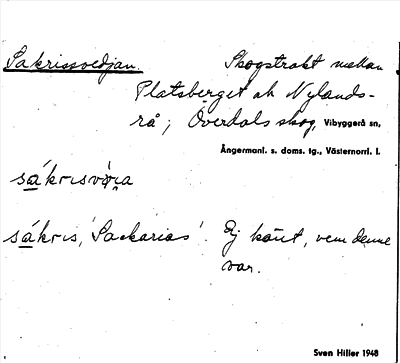 Sakrissvedjan. Skogstrakt mellan
Platsberget och Nylands-
rå; Överdals skog, Vibyggerå sn,
Ångermanl. s. doms. tg., Västernorrl. l.
sákrisvò̜ia
sákris, 'Sackarias'. Ej känt, vem denne
var.
Sven Hiller 1948